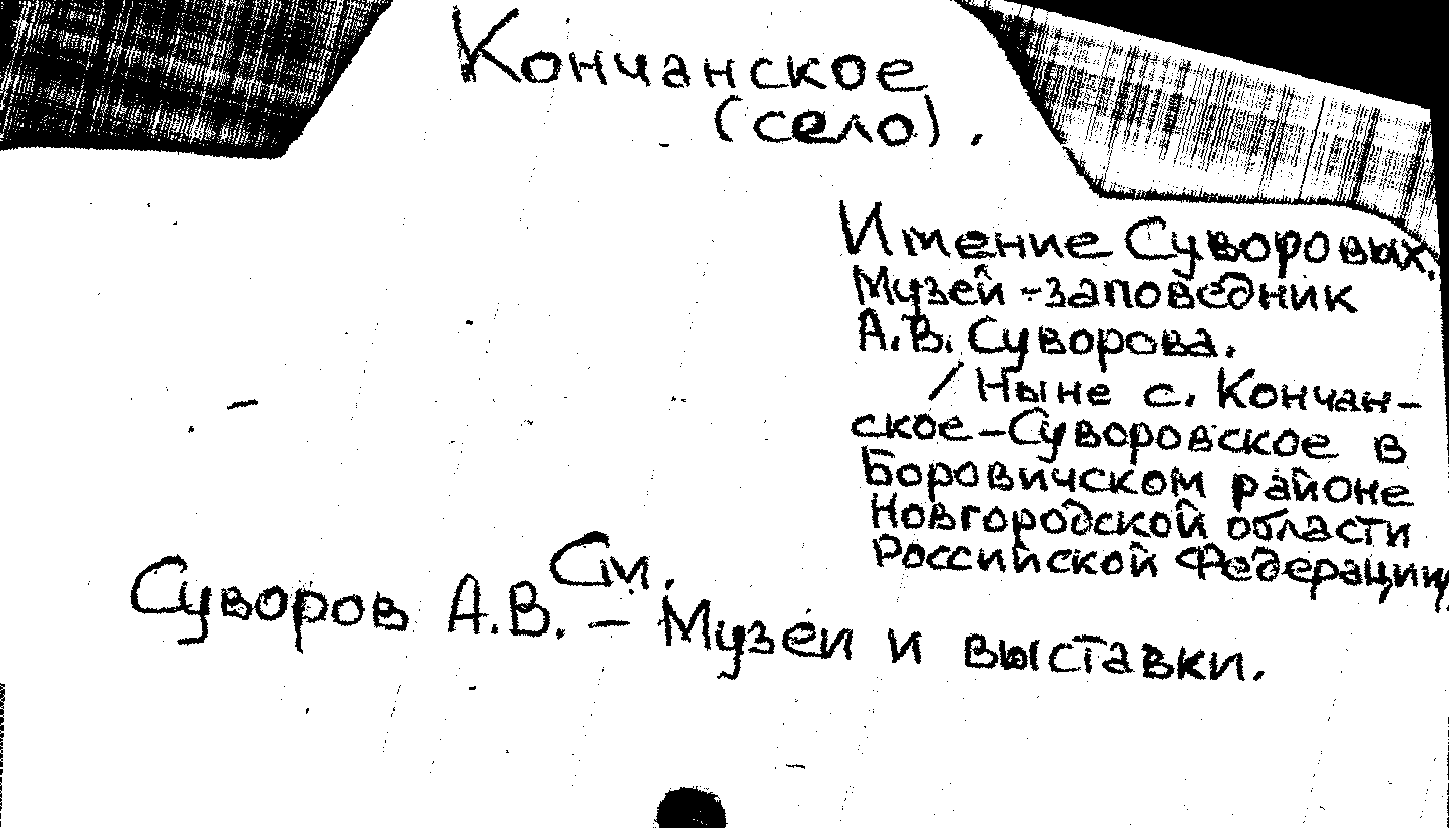 Кончанское
(село).
Имение Суворовых.
Музей-заповедник
А.В. Суворова.
/ Ныне с. Кончан-
ское-Суворовское в
Боровичском районе
Новгородской области
Российской Федерации/
См.
Суворов А.В. – Музеи и выставки.